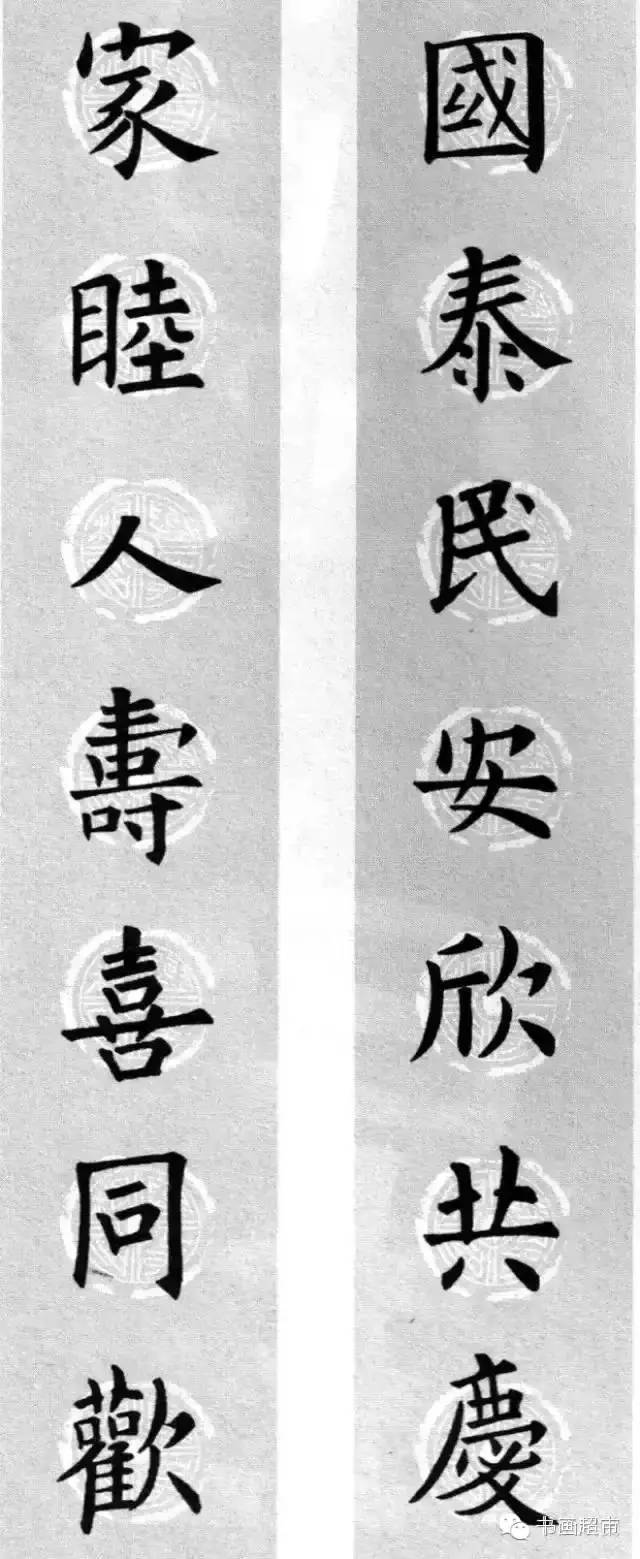 國泰民安欣共慶
家睦人壽喜同歡
书画超市